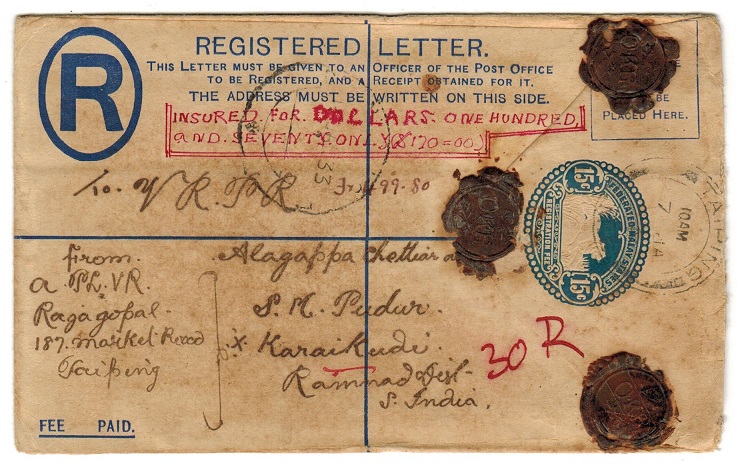 R
REGISTERED LETTER.
THIS LETTER MUST BE GIVEN TO AN OFFICER OF THE POST OFFICE
TO BE REGISTERED, AND A RECEIPT OBTAINED FOR IT.
THE ADDRESS MUST BE WRITTEN ON THIS SIDE.
BE
PLACED HERE.
INSURED. FOR. DOLLARS. ONE HUNDRED
AND. SEVENTY. ONLY ($170=00)
33
To. V R. P R
99.80
15c
FEDERATED MALAY STATES
REGISTRATION FEE
15c
TAIPING
10AM
7 JA
From
a PL. VR.
Ragagopal.
187. Market Road
Taiping
Alagappa Chettiar
S. M. Pudur.
Karaikudi.
Ramnad Dist-
S. India.
30 R
FEE PAID.